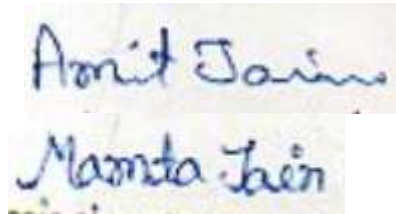 Amit Jain
Mamta Jain